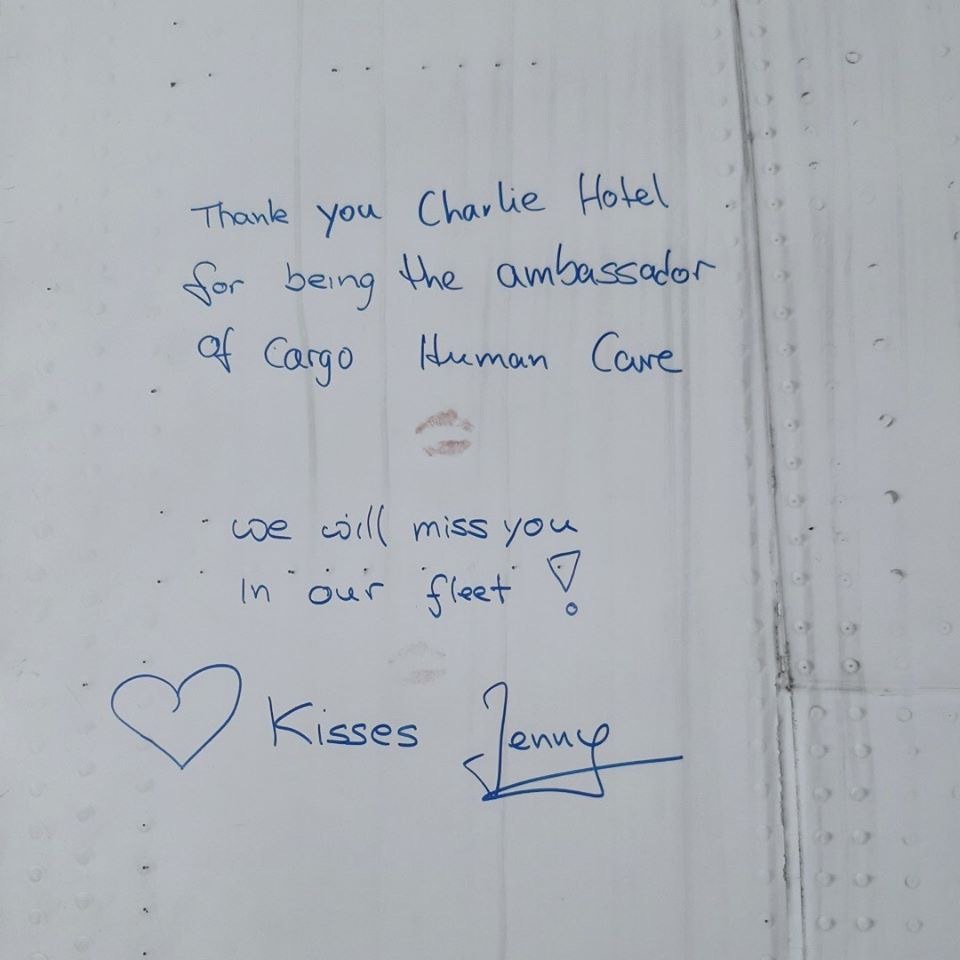 Thank you Charlie Hotel
for being the ambassador
of Cargo Human Care
we will miss you
in our fleet !
Kisses Jenny